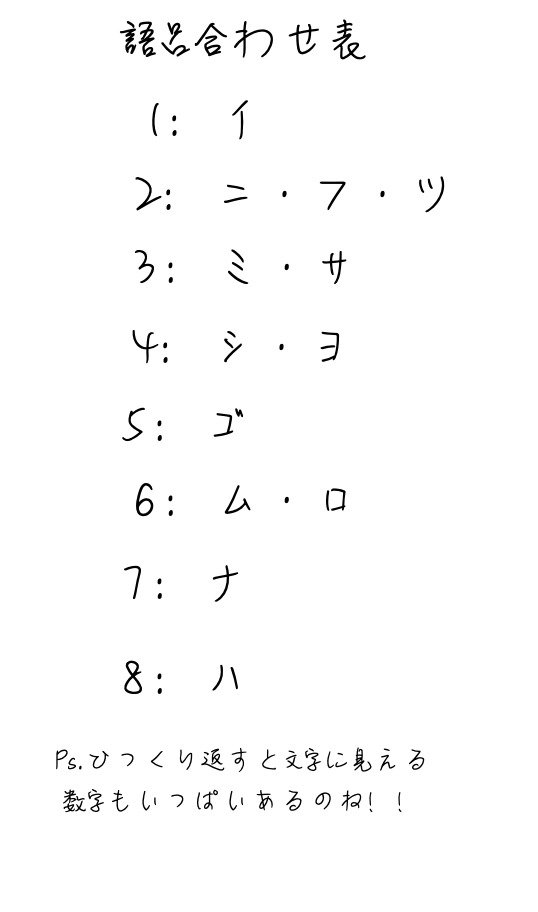 語呂合わせ表
1: イ
2: ニ・フ・ツ
3: ミ・サ
4: シ・ヨ
5: ゴ
6: ム・ロ
7: ナ
8: ハ
Ps.ひっくり返すと文字に見える
数字もいっぱいあるのね!!